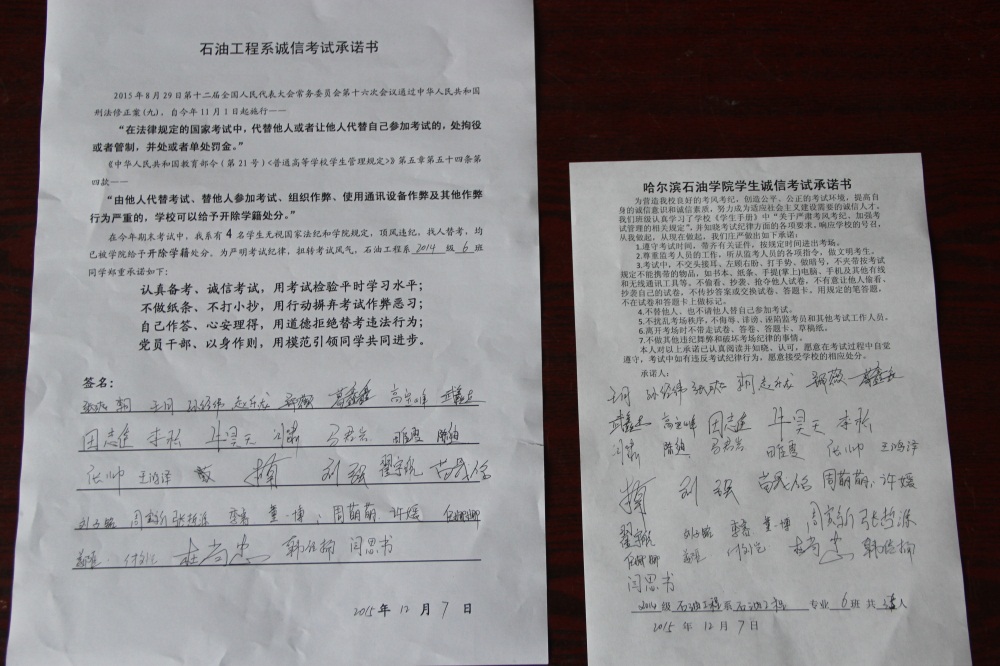 石油工程系诚信考试承诺书
2015年8月29日第十二届全国人民代表大会常务委员会第十六次会议通过中华人民共和国
刑法修正案(九),自今年11月1日起施行——
“在法律规定的国家考试中,代替他人或者让他人代替自己参加考试的,处拘役
或者管制,并处或者单处罚金。”
《中华人民共和国教育部令(第21号)<普通高等学校学生管理规定>》第五章第五十四条第
四款——
“由他人代替考试、替他人参加考试、组织作弊、使用通讯设备作弊及其他作弊
行为严重的,学校可以给予开除学籍处分。”
在今年期末考试中,我系有4名学生无视国家法纪和学院规定,顶风违纪,找人替考,均
已被学院给予开除学籍处分。为严明考试纪律,扭转考试风气,石油工程系 2014 级 6 班
同学郑重承诺如下:
认真备考、诚信考试,用考试检验平时学习水平;
不做纸条、不打小抄,用行动摒弃考试作弊恶习;
自己作答、心安理得,用道德拒绝替考违法行为;
党员干部、以身作则,用模范引领同学共同进步。
签名:
田志健 李松 牛昊天 马君岩
张帅 王鸿泽 刘强 翟宇锐
周寅新 张哲源 李睿 董博 周萌萌 许媛
杜尚杰 韩佳柳 闫思书
2015年12月7日
哈尔滨石油学院学生诚信考试承诺书
为营造我校良好的考风考纪,创造公平、公正的考试环境,提高自
身的诚信意识和诚信素质,努力成为适应社会主义建设需要的诚信人才。
我们班级认真学习了学校《学生手册》中“关于严肃考风考纪、加强考
试管理的相关规定”。并知晓考试纪律方面的各项要求,响应学校的号召,
从我做起,从现在做起,我们庄严做出如下承诺:
1.遵守考试时间,带齐有关证件,按规定时间进出考场。
2.尊重监考人员的工作,听从监考人员的各项指令,做文明考生。
3.考试中,不交头接耳、左顾右盼、打手势、做暗号,不夹带按考试
规定不能携带的物品,如书本、纸条、手提(掌上)电脑、手机及其他有线
和无线通讯工具等,不偷看、抄袭、抢夺他人试卷,不有意让他人偷看、
抄袭自己的试卷,不传抄答案或交换试卷、答题卡。用规定的笔答题,
不在试卷和答题卡上做标记。
4.不替他人、也不请他人替自己参加考试。
5.不扰乱考场秩序,不侮辱、诽谤、诬陷监考员和其他考试工作人员。
6.离开考场时不带走试卷、答卷、答题卡、草稿纸。
7.不做其他违纪舞弊和破坏考场纪律的事情。
本人对以上承诺已认真阅读并知晓、认可,愿意在考试过程中自觉
遵守,考试中如有违反考试纪律行为,愿意接受学校的相应处分。
承诺人:
田志健 牛昊天 李松
马君岩 张帅 王鸿泽
刘强 周萌萌 许媛
翟宇锐 李睿 董博 周寅新 张哲源
杜尚杰 韩佳柳
闫思书
2014 级 石油工程 系 石油工程 专业 6 班 共 人
2015年12月7日